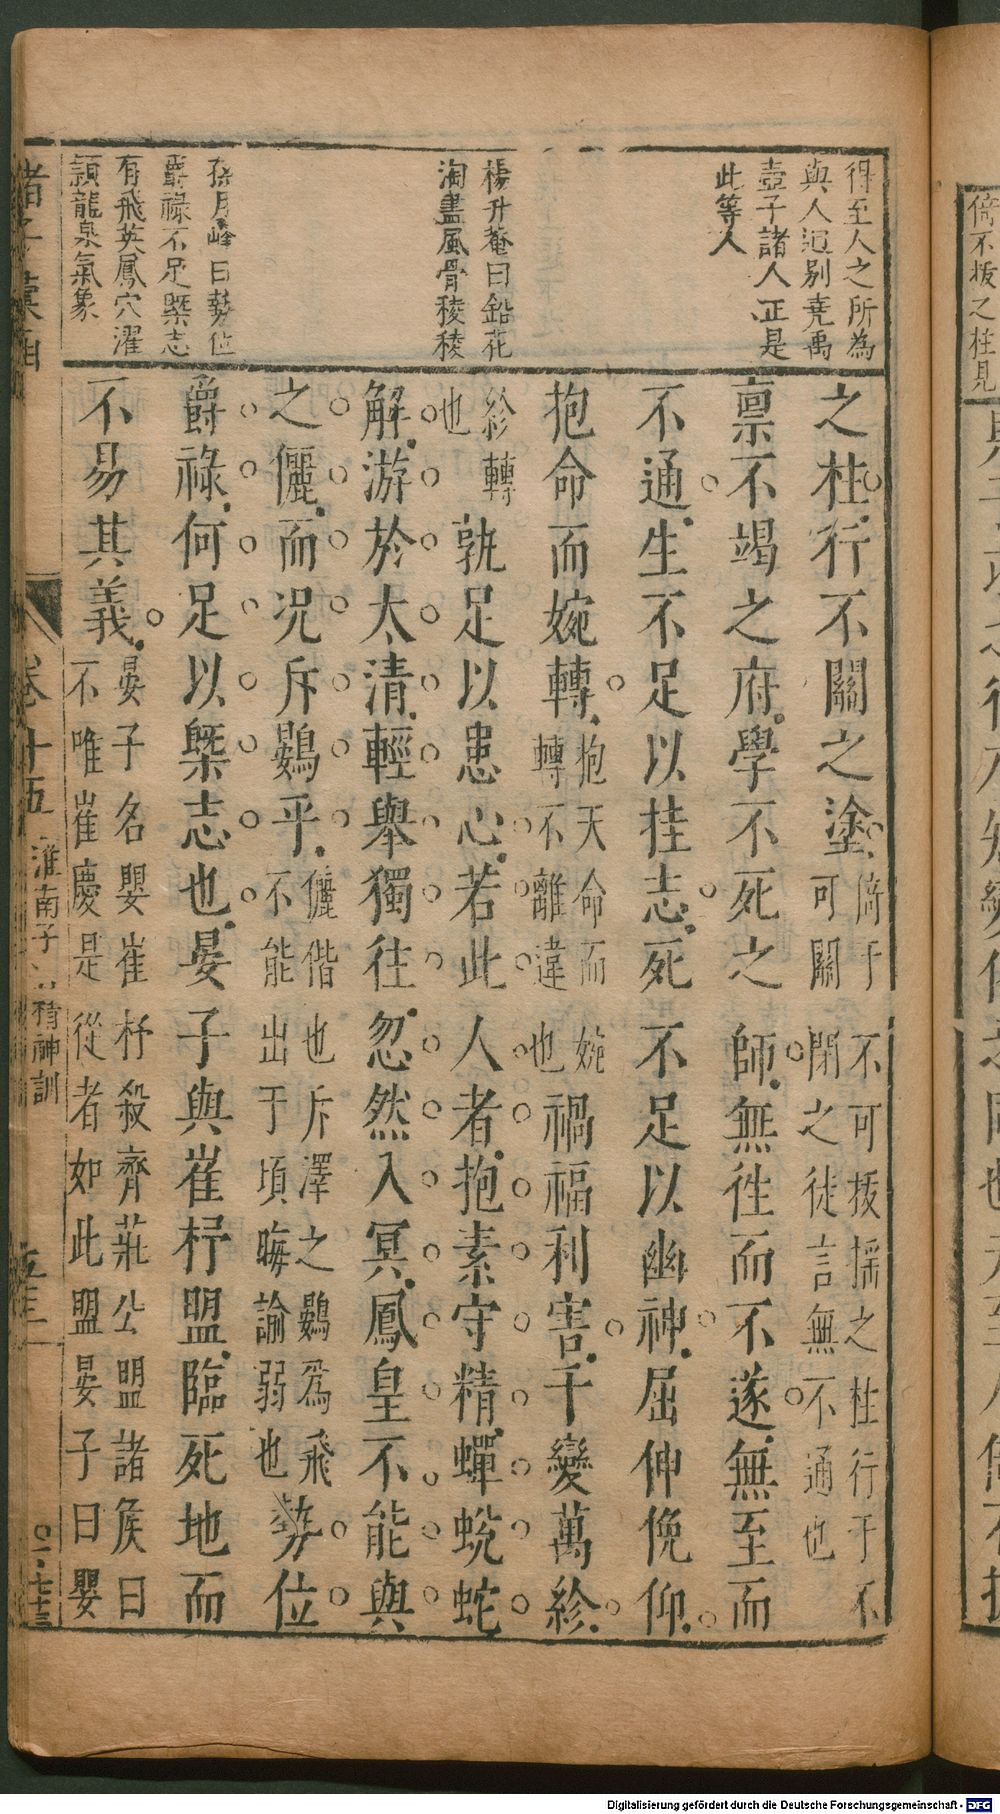 得至人之所為
與人逈別堯禹
壺子諸人正是
此等人
楊升菴曰鉛花
淘盡風骨稜稜
孫月峰曰勢位
爵祿不足槩志
有飛英鳳穴濯
頴龍泉氣象
之柱行不關之塗
倚于不可拔搖之柱行于不
可關閉之徒言無不通也
禀不竭之府學不死之師無徃而不遂無至而
不通生不足以挂志死不足以幽神屈伸俛仰
抱命而婉轉
抱天命而婉
轉不離違也
禍福利害千變萬紾
紾轉
也
孰足以患心若此人者抱素守精蟬蛻蛇
解游於太清輕舉獨徃忽然入冥鳳皇不能與
之儷而况斥鷃乎
儷偕也斥澤之鷃爲飛
不能出于頃畮諭弱也
勢位
爵祿何足以槩志也晏子與崔杼盟臨死地而
不易其義
晏子名嬰崔杼殺齊莊公盟諸侯曰
不唯崔慶是從者如此盟晏子曰嬰
諸子彙函
卷十五
淮南子
精神訓
倚不拔之柱見
Digitalisierung gefördert durch die Deutsche Forschungsgemeinschaft - DFG